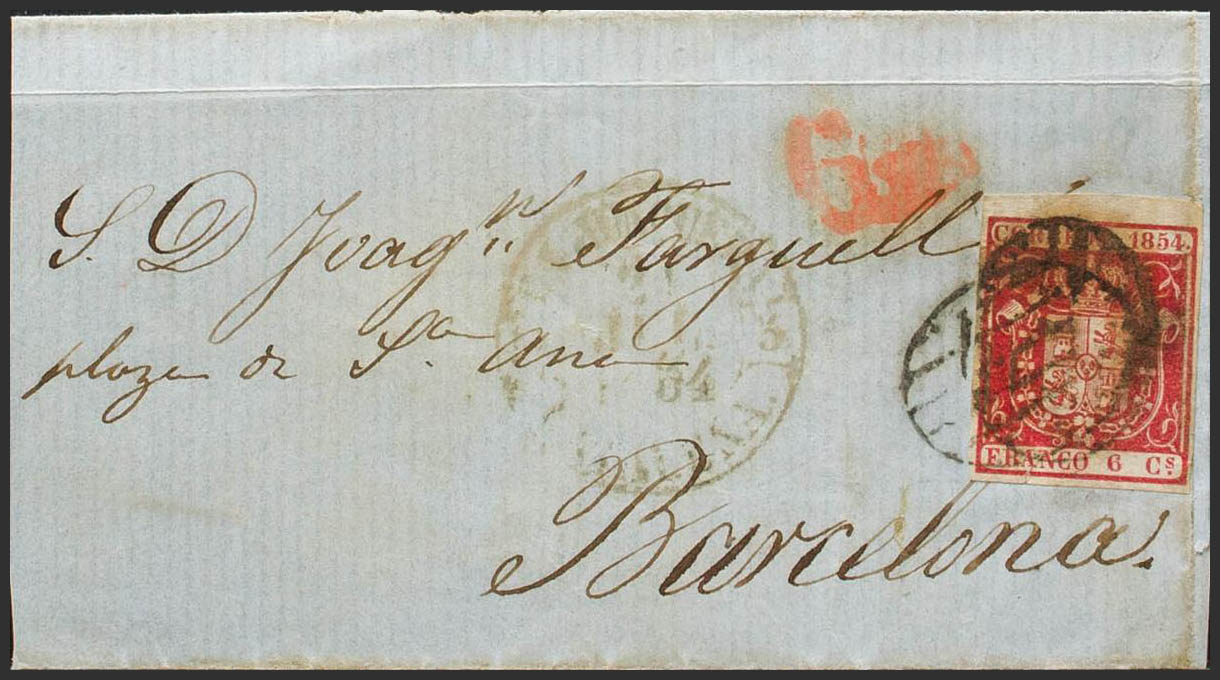 S. D Joaqn. Farguell
plaza de Sta Ana
Barcelona.
CORREOS 1854.
FRANCO 6 Cs.
54